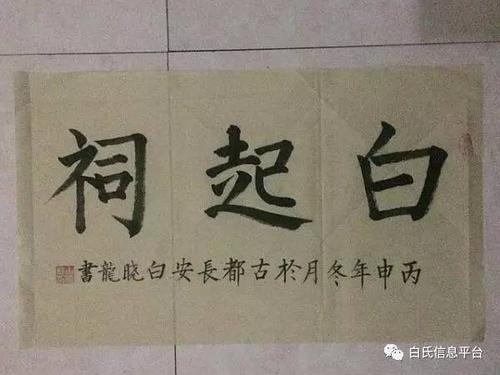 白起祠
丙申年冬月於古都長安白曉龍書
白氏信息平台